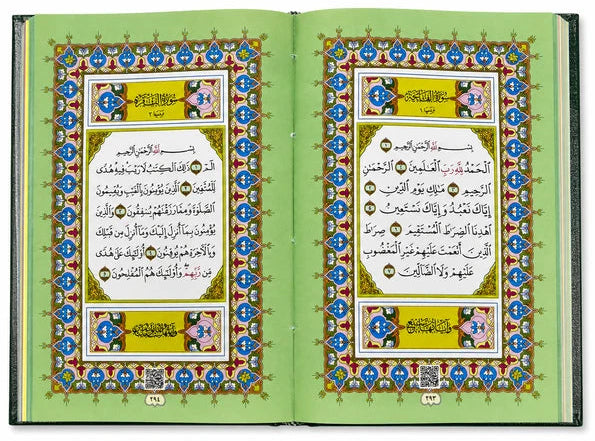 سُورَةُ الفَاتِحَةِ
ترتيبها ١
بِسْمِ ٱللَّهِ ٱلرَّحْمَٰنِ ٱلرَّحِيمِ ١
ٱلْحَمْدُ لِلَّهِ رَبِّ ٱلْعَٰلَمِينَ ٢ ٱلرَّحْمَٰنِ
ٱلرَّحِيمِ ٣ مَٰلِكِ يَوْمِ ٱلدِّينِ ٤
إِيَّاكَ نَعْبُدُ وَإِيَّاكَ نَسْتَعِينُ ٥
ٱهْدِنَا ٱلصِّرَٰطَ ٱلْمُسْتَقِيمَ ٦ صِرَٰطَ
ٱلَّذِينَ أَنْعَمْتَ عَلَيْهِمْ غَيْرِ ٱلْمَغْضُوبِ
عَلَيْهِمْ وَلَا ٱلضَّآلِّينَ ٧
٢٩٣
سُورَةُ البَقَرَةِ
ترتيبها ٢
بِسْمِ ٱللَّهِ ٱلرَّحْمَٰنِ ٱلرَّحِيمِ
الٓمٓ ١ ذَٰلِكَ ٱلْكِتَٰبُ لَا رَيْبَ فِيهِ هُدًى
لِّلْمُتَّقِينَ ٢ ٱلَّذِينَ يُؤْمِنُونَ بِٱلْغَيْبِ وَيُقِيمُونَ
ٱلصَّلَوٰةَ وَمِمَّا رَزَقْنَٰهُمْ يُنفِقُونَ ٣ وَٱلَّذِينَ
يُؤْمِنُونَ بِمَآ أُنزِلَ إِلَيْكَ وَمَآ أُنزِلَ مِن قَبْلِكَ
وَبِٱلْءَاخِرَةِ هُمْ يُوقِنُونَ ٤ أُو۟لَٰٓئِكَ عَلَىٰ هُدًى
مِّن رَّبِّهِمْ وَأُو۟لَٰٓئِكَ هُمُ ٱلْمُفْلِحُونَ ٥
٢٩٤